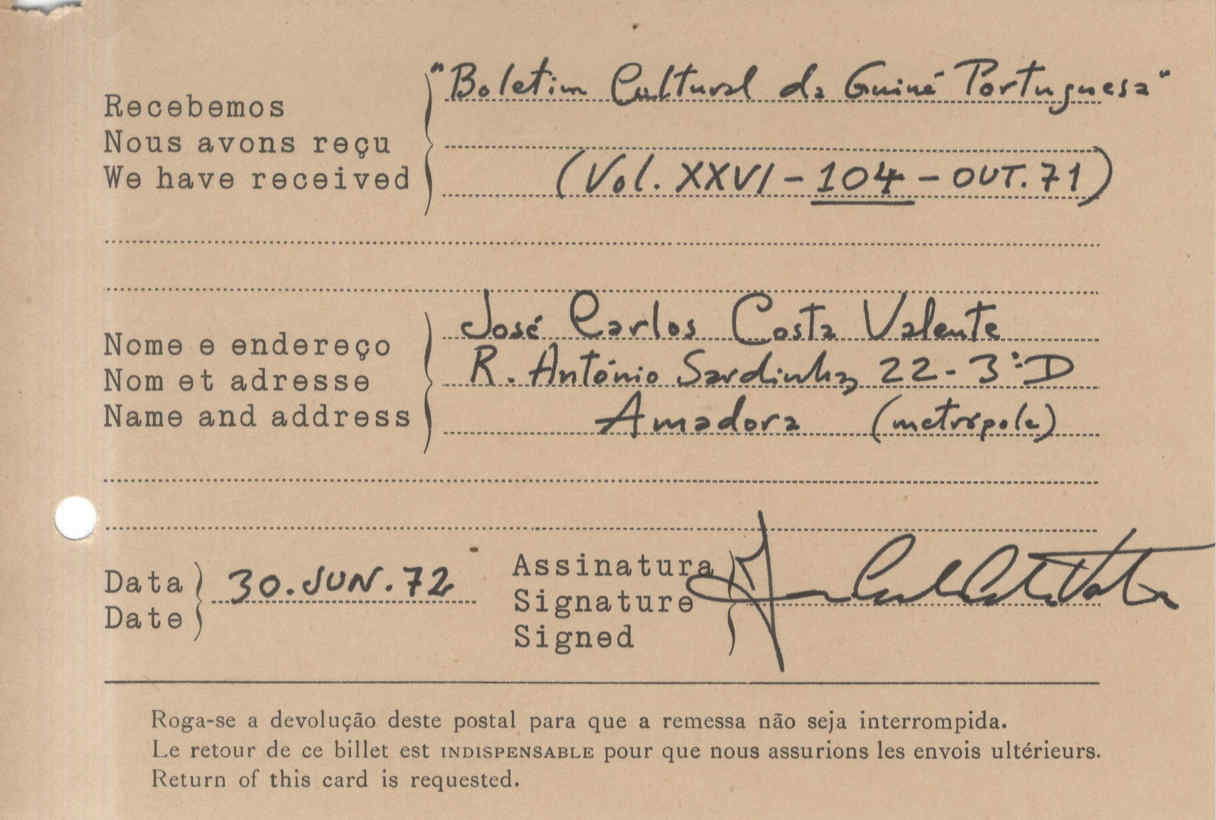 "Boletim Cultural da Guiné Portuguesa"
Recebemos
Nous avons reçu
We have received
(Vol. XXVI - 104 - OUT. 71)
José Carlos Costa Valente
Nome e endereço
R. António Sardinha 22 - 3º D
Nom et adresse
Amadora (metrópole)
Name and address
Data
Date
30. JUN. 72
Assinatura
Signature
Signed
Roga-se a devolução deste postal para que a remessa não seja interrompida.
Le retour de ce billet est INDISPENSABLE pour que nous assurions les envois ultérieurs.
Return of this card is requested.